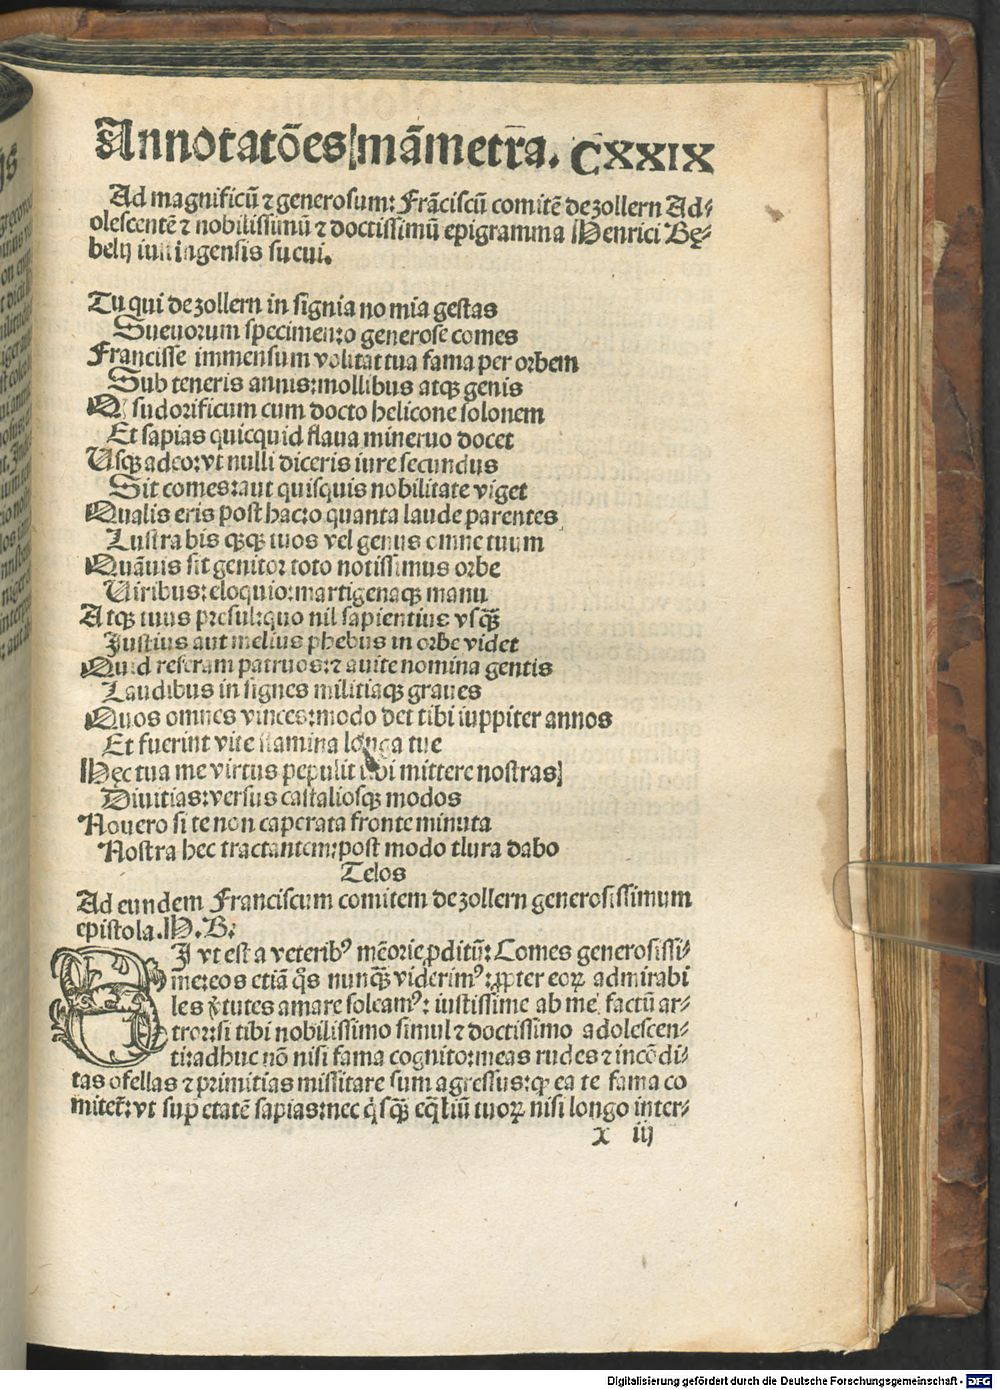 Annotatões mãmetra. CXXIX
Ad magnificũ ⁊ generosum: Frãciscũ comitẽ de zollern Ad⸗
olescentẽ ⁊ nobilissimũ ⁊ doctissimũ epigramma Henrici Bę⸗
belij iustingensis sucui.
Tu qui de zollern in signia no mia gestas
Sueuorum specimen: o generose comes
Francisse immensum volitat tua fama per orbem
Sub teneris annis: mollibus atqꝫ genis
Q sudorificum cum docto helicone solonem
Et sapias quicquid flaua mineruo docet
Usqꝫ adeo: vt nulli diceris iure secundus
Sit comes: aut quisquis nobilitate viget
Qualis eris post hac: o quanta laude parentes
Lustra bis qꝫqꝫ tuos vel genus omne tuum
Quãuis sit genitor toto notissimus orbe
Uiribus: eloquio: martigenaqꝫ manu
Atqꝫ tuus presul: quo nil sapientius vsqꝫ̃
Justius aut melius phebus in orbe videt
Quid referam patruos: ⁊ auite nomina gentis
Laudibus in signes militiaqꝫ graues
Quos omnes vinces: modo det tibi iuppiter annos
Et fuerint vite stamina longa tue
Hec tua me virtus pepulit tibi mittere nostras
Diuitias: versus castaliosqꝫ modos
Nouero si te non caperata fronte minuta
Nostra hec tractantem: post modo tlura dabo
Telos
Ad eundem Franciscum comitem de zollern generosissimum
epistola. H. B:
SI vt est a veteribꝰ mẽorie ꝓditũ: Comes generosissi⸗
me: eos etiã q̃s nunqꝫ̃ viderimꝰ: ꝓpter eoꝝ admirabi
les ṽtutes amare soleamꝰ: iustissime ab me factũ ar⸗
tror: si tibi nobilissimo simul ⁊ doctissimo adolescen⸗
ti: adhuc nõ nisi fama cognito: meas rudes ⁊ incõdi⸗
tas ofellas ⁊ primitias missitare sum agressus: qꝫ ea te fama co
mitet̃: vt sup etatẽ sapias: nec q̃sqꝫ̃ eq̃liũ tuoꝝ nisi longo inter⸗
x iij
Digitalisierung gefördert durch die Deutsche Forschungsgemeinschaft - DFG